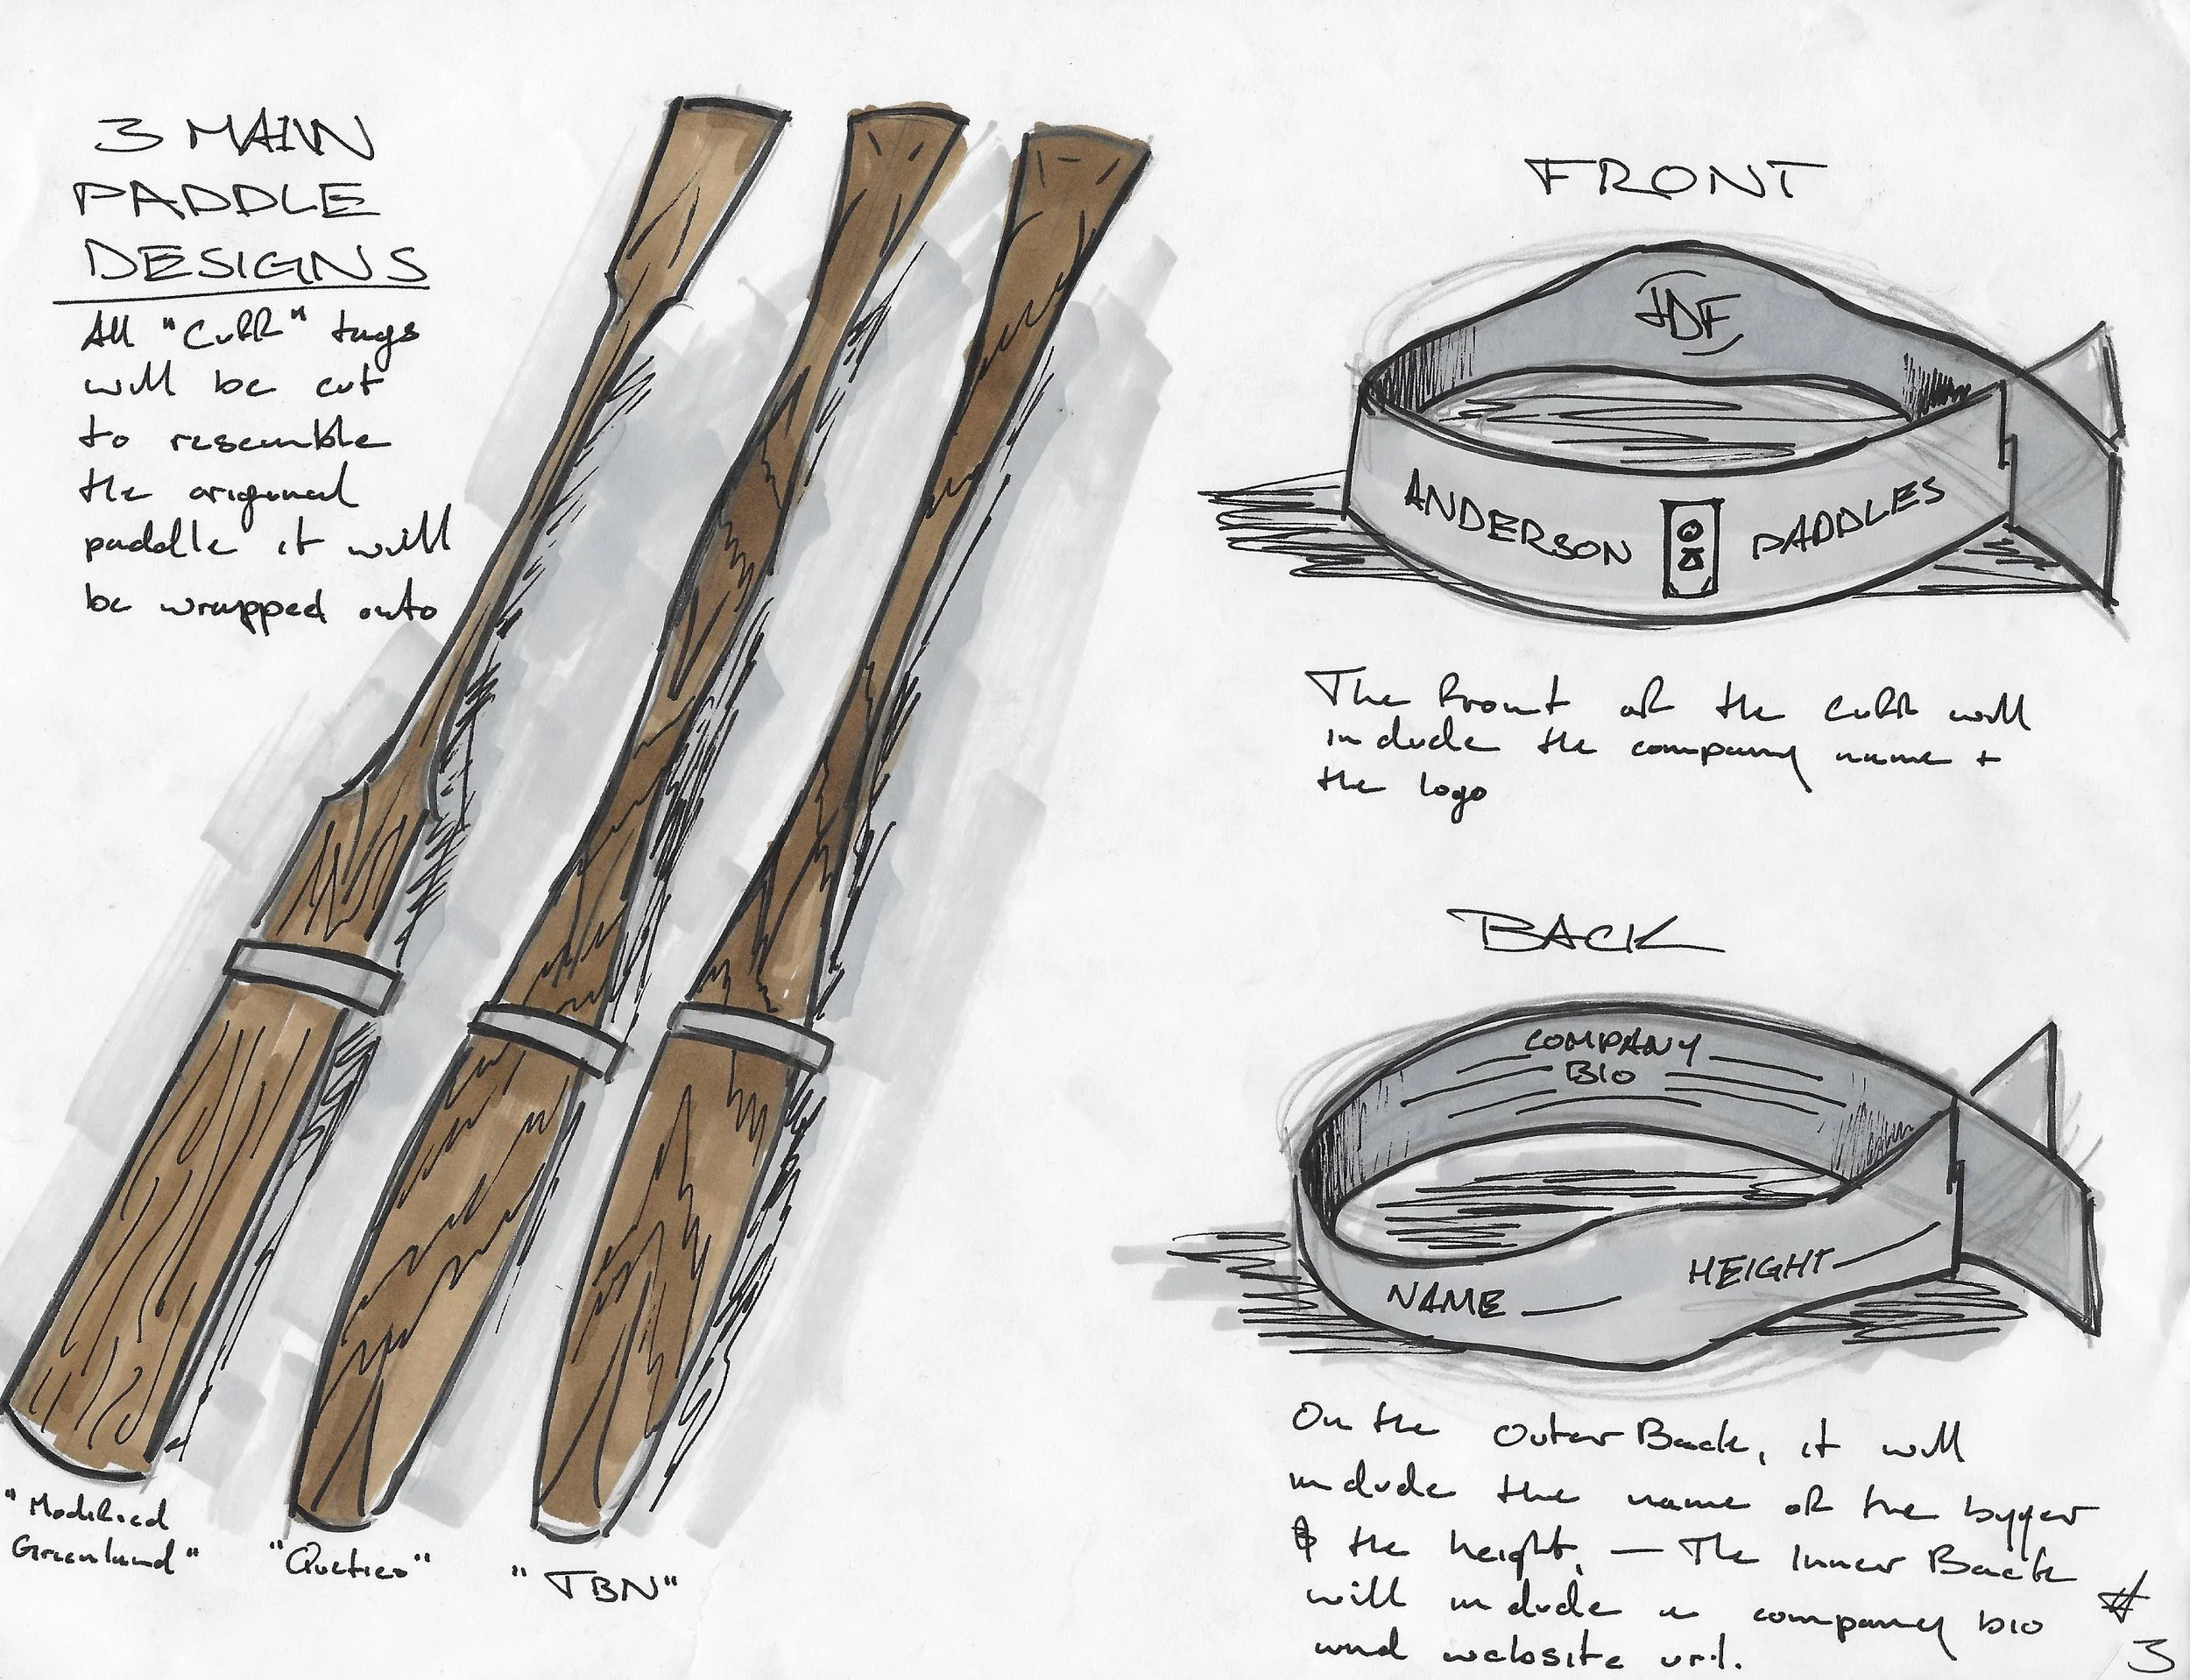 3 MAIN
PADDLE
DESIGNS
All "Cuff" tags
will be cut
to resemble
the original
paddle it will
be wrapped onto
"Modified
Greenland"
"Quetico"
"TBN"
FRONT
ANDERSON PADDLES
The front of the cuff will
include the company name +
the logo
BACK
COMPANY
BIO
NAME
HEIGHT
On the Outer Back, it will
include the name of the buyer
& the height. — The Inner Back
will include a company bio
and website url.
#
3